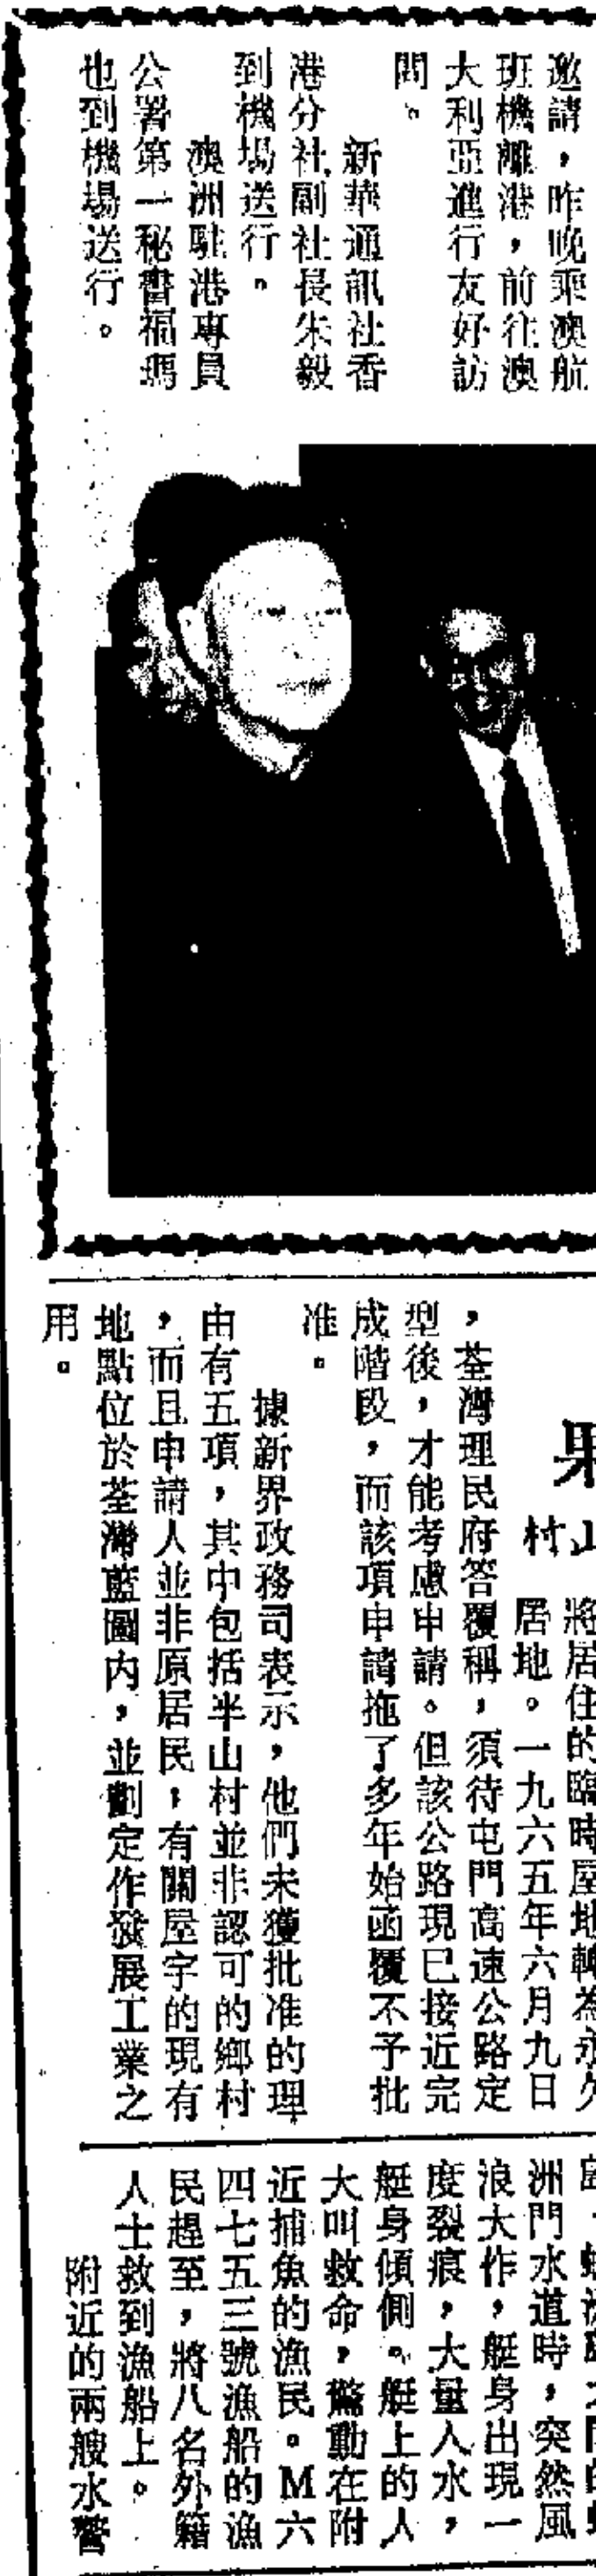 邀請，昨晚乘澳航
班機離港，前往澳
大利亞進行友好訪
問。
新華通訊社香
港分社副社長朱毅
到機場送行。
澳洲駐港專員
公署第一秘書福瑪
也到機場送行。
果
山
村
將居住的臨時屋地轉為永久
居地。一九六五年六月九日
，荃灣理民府答覆稱，須待屯門高速公路定
型後，才能考慮申請。但該公路現已接近完
成階段，而該項申請拖了多年始函覆不予批
准。
據新界政務司表示，他們未獲批准的理
由有五項，其中包括半山村並非認可的鄉村
，而且申請人並非原居民，有關屋宇的現有
地點位於荃灣藍圖內，並劃定作發展工業之
用。
洲門水道時，突然風
浪大作，艇身出現一
度裂痕，大量人水，
艇身傾側。艇上的人
大叫救命，驚動在附
近捕魚的漁民。M六
四七五三號漁船的漁
民趕至，將八名外籍
人士救到漁船上。
附近的兩艘水警